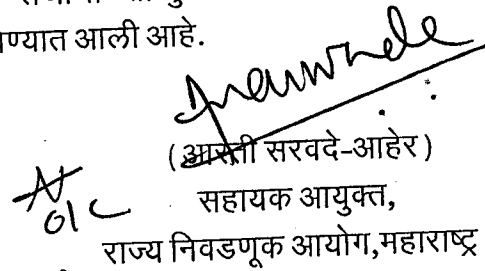 ण्यात आली आहे.
(आरती सरवदे-आहेर)
सहायक आयुक्त,
राज्य निवडणूक आयोग,महाराष्ट्र